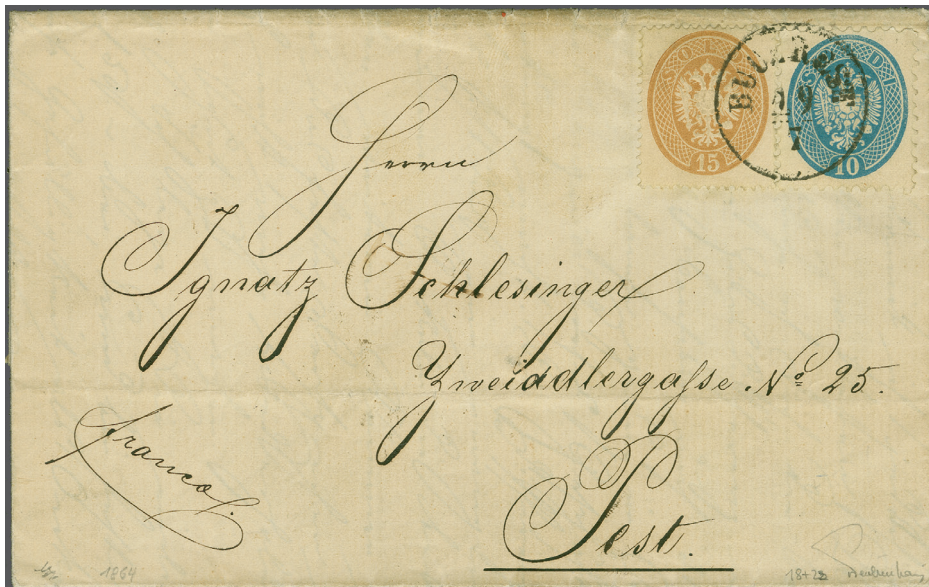 SOLDI
15
SOLDI
10
BUCAREST
7
Herrn
Ignatz Schlesinger
Zweiadlergaſse. No 25.
franco.
Pest.
1864
18+23